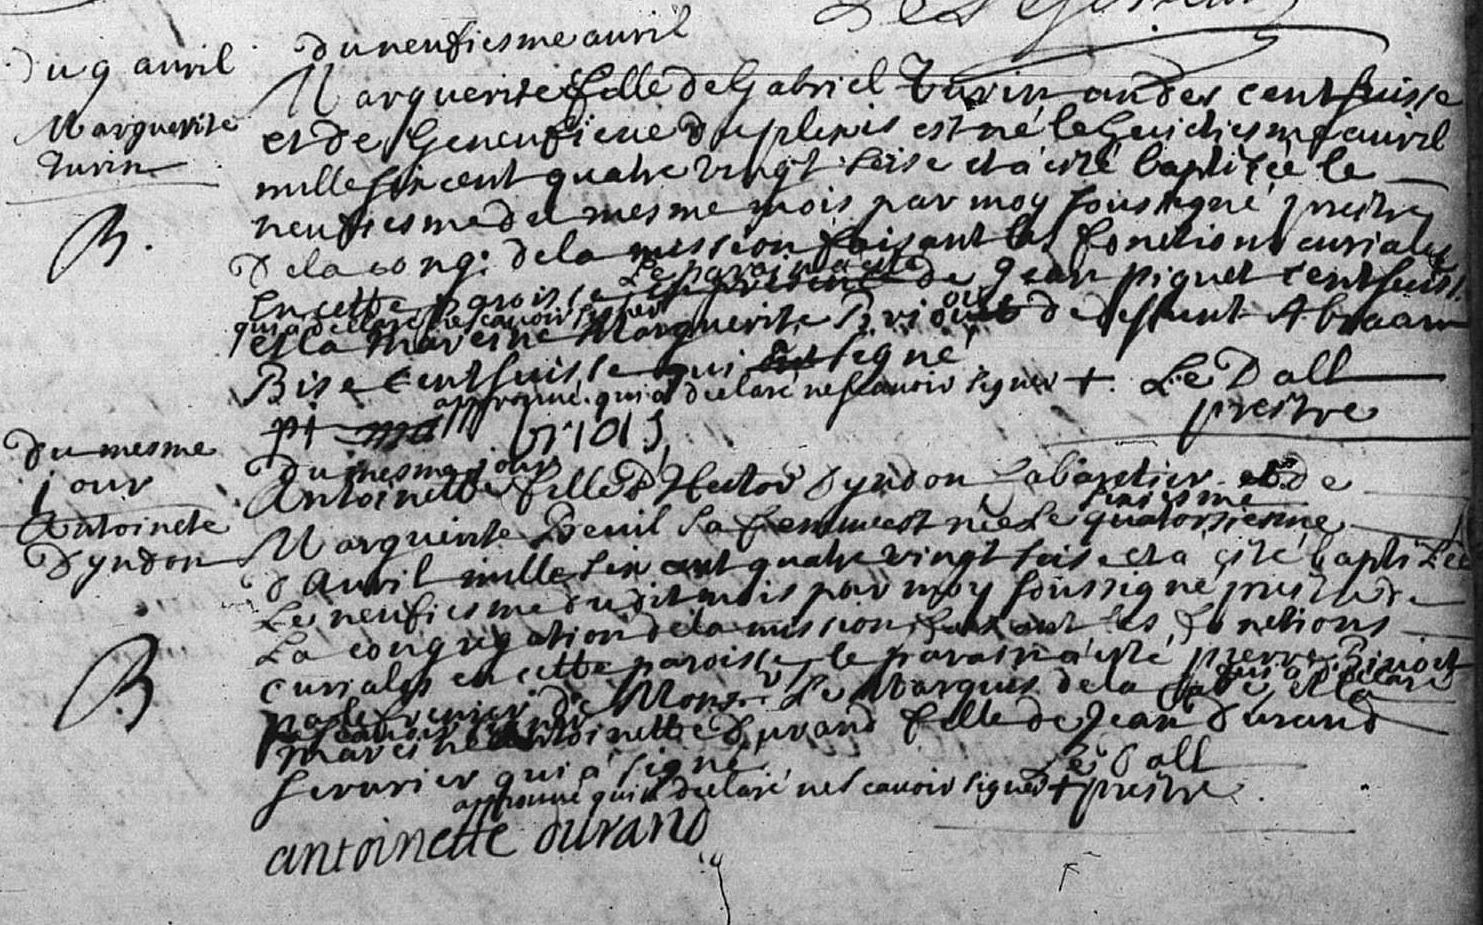 du 9 auril
Marguerite
turin
B.
du neufiesme auril
Marguerite fille de Gabriel Turin un des cent suisse
et de Geneufieue duplesis est né le huictiesme auril
mille six cent quatre vingt seise et a esté baptisée le
neufiesme du mesme mois par moy soussigné prestre
de la cong: de la mission faisant les fonctions curiales
en cette paroisse le parain a esté Jean piquet cent suisse
qui a declaré ne scauoir signer
et la mareine Marguerite Briois de deffunt Abraam
Bise cent suisse qui signé
approuué qui a declaré ne scauoir signer +. Le Dall
prestre
briois
du mesme
jour
Antoinete
Dyndon
B
du mesme jour
Antoinette fille d'Hector Dyndon Cabaretier et de
Marguerite Breuil sa femme est née le quatorsiesme
d'Auril mille six cent quatre vingt seise et a esté baptisée
le neufiesme dudit mois par moy soussigné prestre de
la congregation de la mission, faisant les fonctions
curiales en cette paroisse, le parain a esté pierre
de Monsr. Le Marquis de la et la
mareine Antoinette Durand fille de Jean Durand
serurier qui a signé
approuué qui a declaré ne scauoir signer +
Le Dall
prestre
antoinette durand